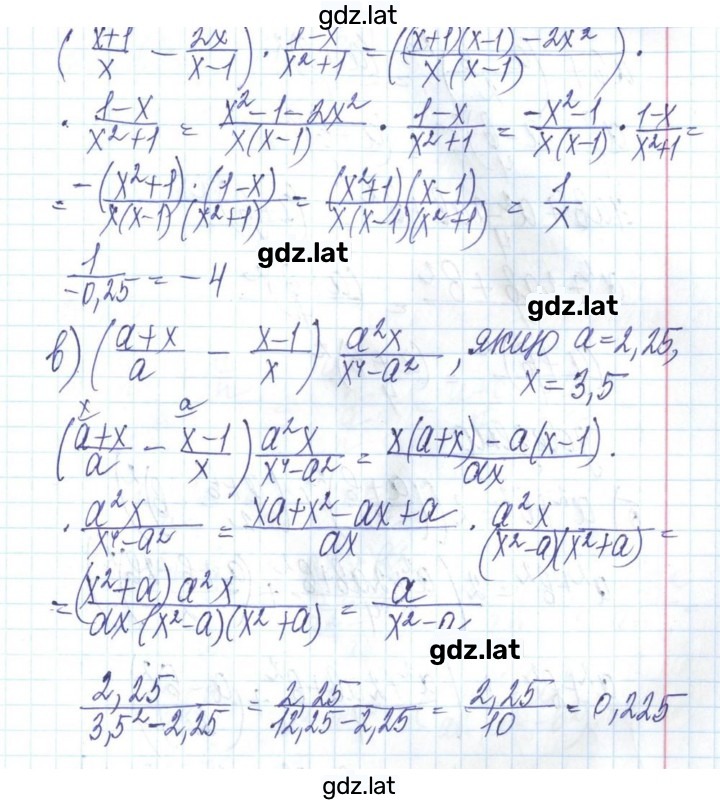 gdz.lat
( x+1/x − 2x/x−1 ) · 1−x/x²+1 = ( (x+1)(x−1) − 2x²/x(x−1) ) ·
· 1−x/x²+1 = x²−1−2x²/x(x−1) · 1−x/x²+1 = −x²−1/x(x−1) · 1−x/x²+1 =
= −(x²+1)·(1−x)/x(x−1)(x²+1) = (x²+1)(x−1)/x(x−1)(x²+1) = 1/x
gdz.lat
1/−0,25 = −4
gdz.lat
в) ( a+x/a − x−1/x ) a²x/x⁴−a² , якщо a=2,25,
x=3,5
x a
( a+x/a − x−1/x ) a²x/x⁴−a² = x(a+x) − a(x−1)/ax ·
· a²x/x⁴−a² = xa+x²−ax+a/ax · a²x/(x²−a)(x²+a) =
= (x²+a) a²x/ax(x²−a)(x²+a) = a/x²−a
gdz.lat
2,25/3,5²−2,25 = 2,25/12,25−2,25 = 2,25/10 = 0,225
gdz.lat